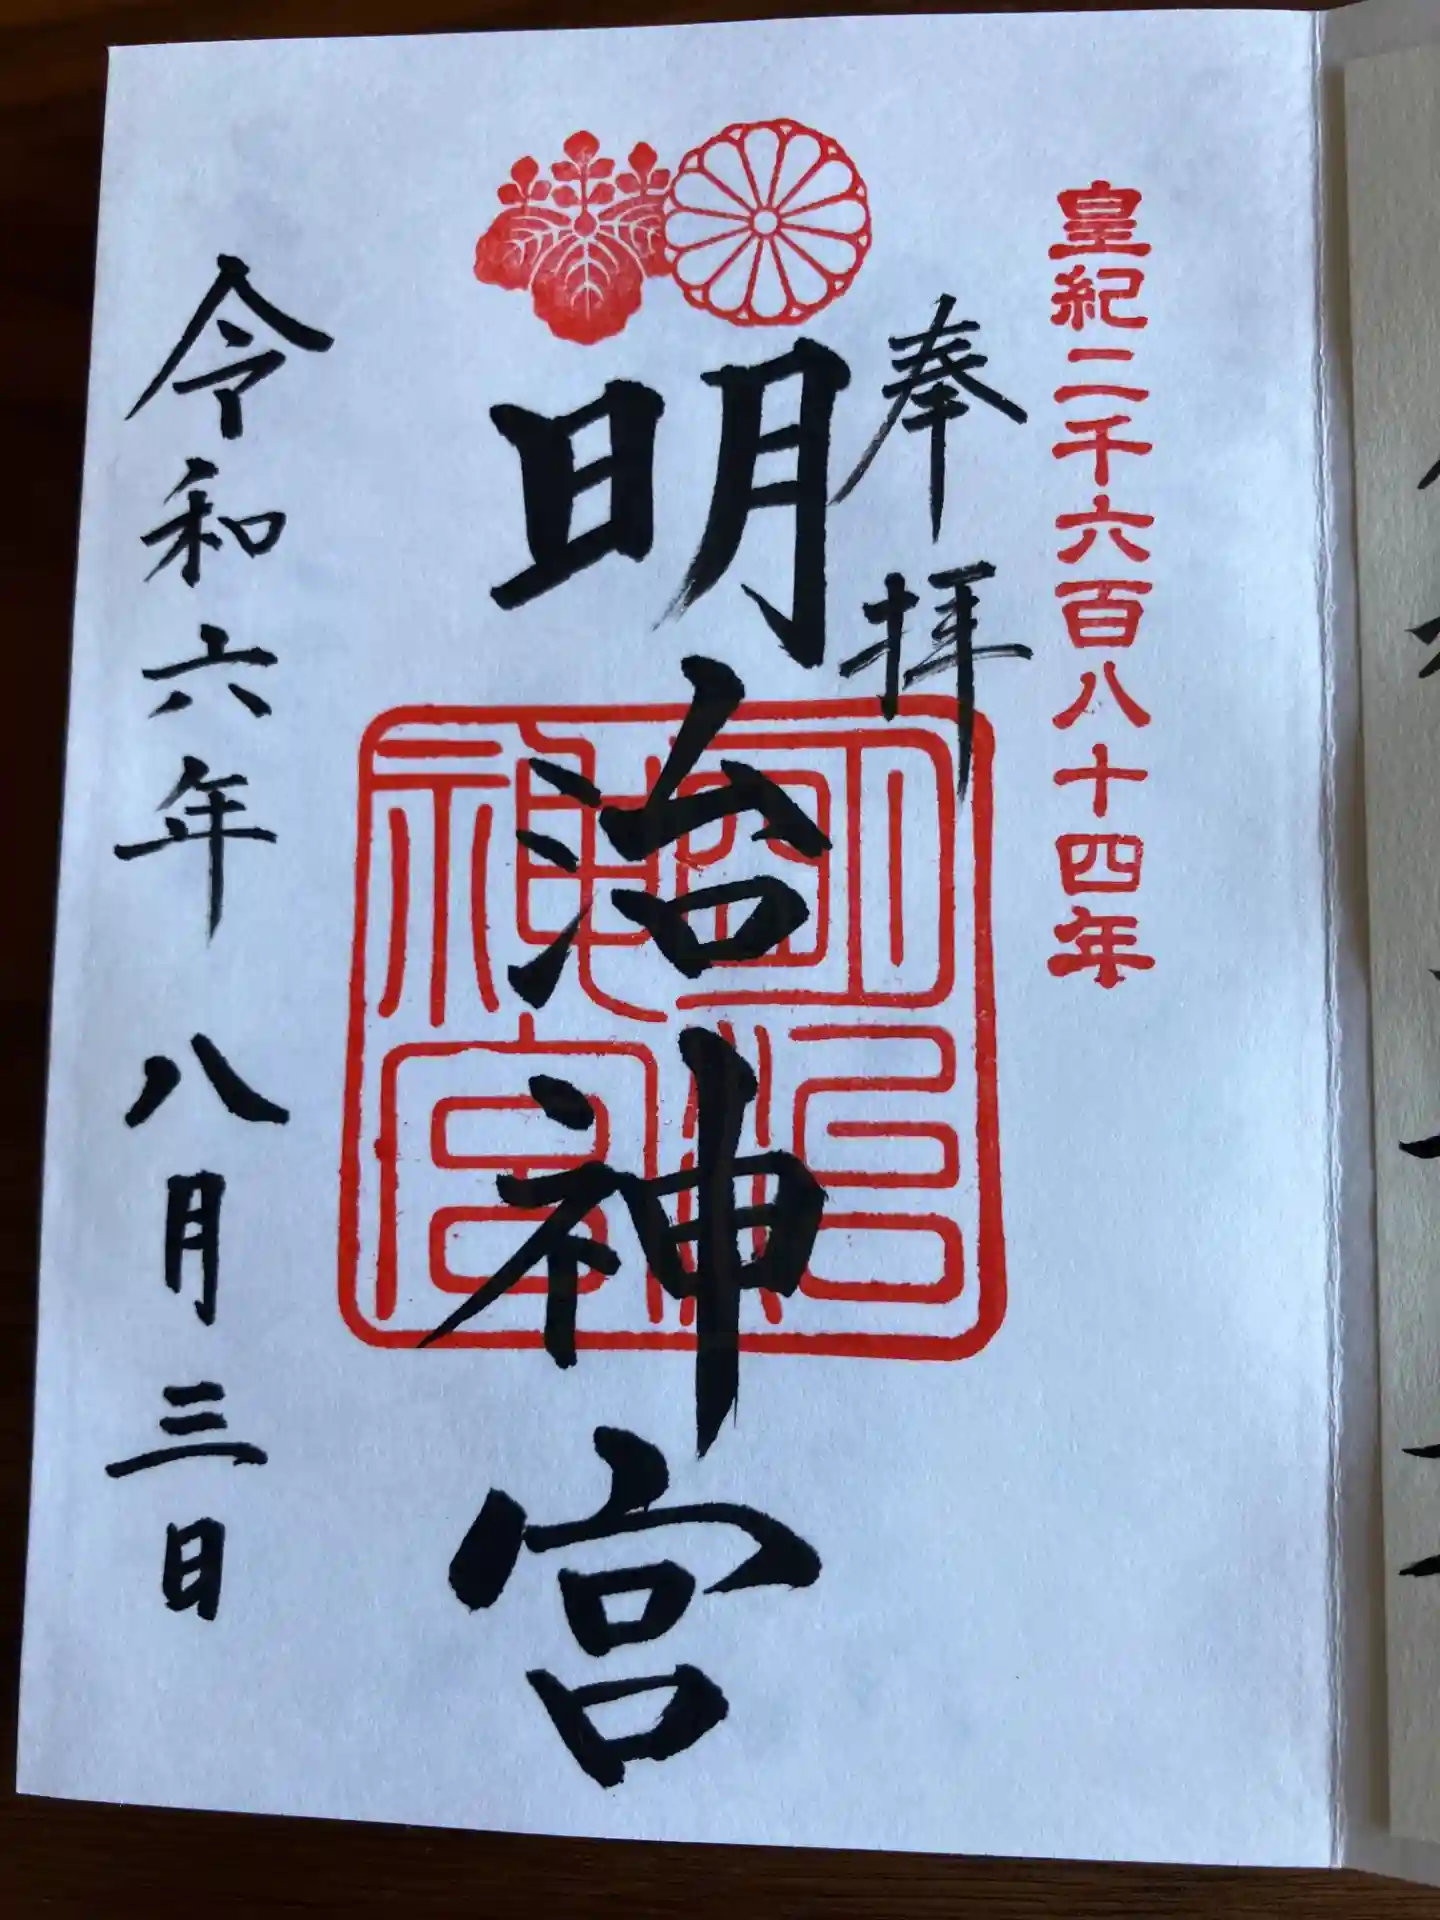 皇紀二千六百八十四年
奉拝
明治神宮
明治神宮
令和六年 八月三日